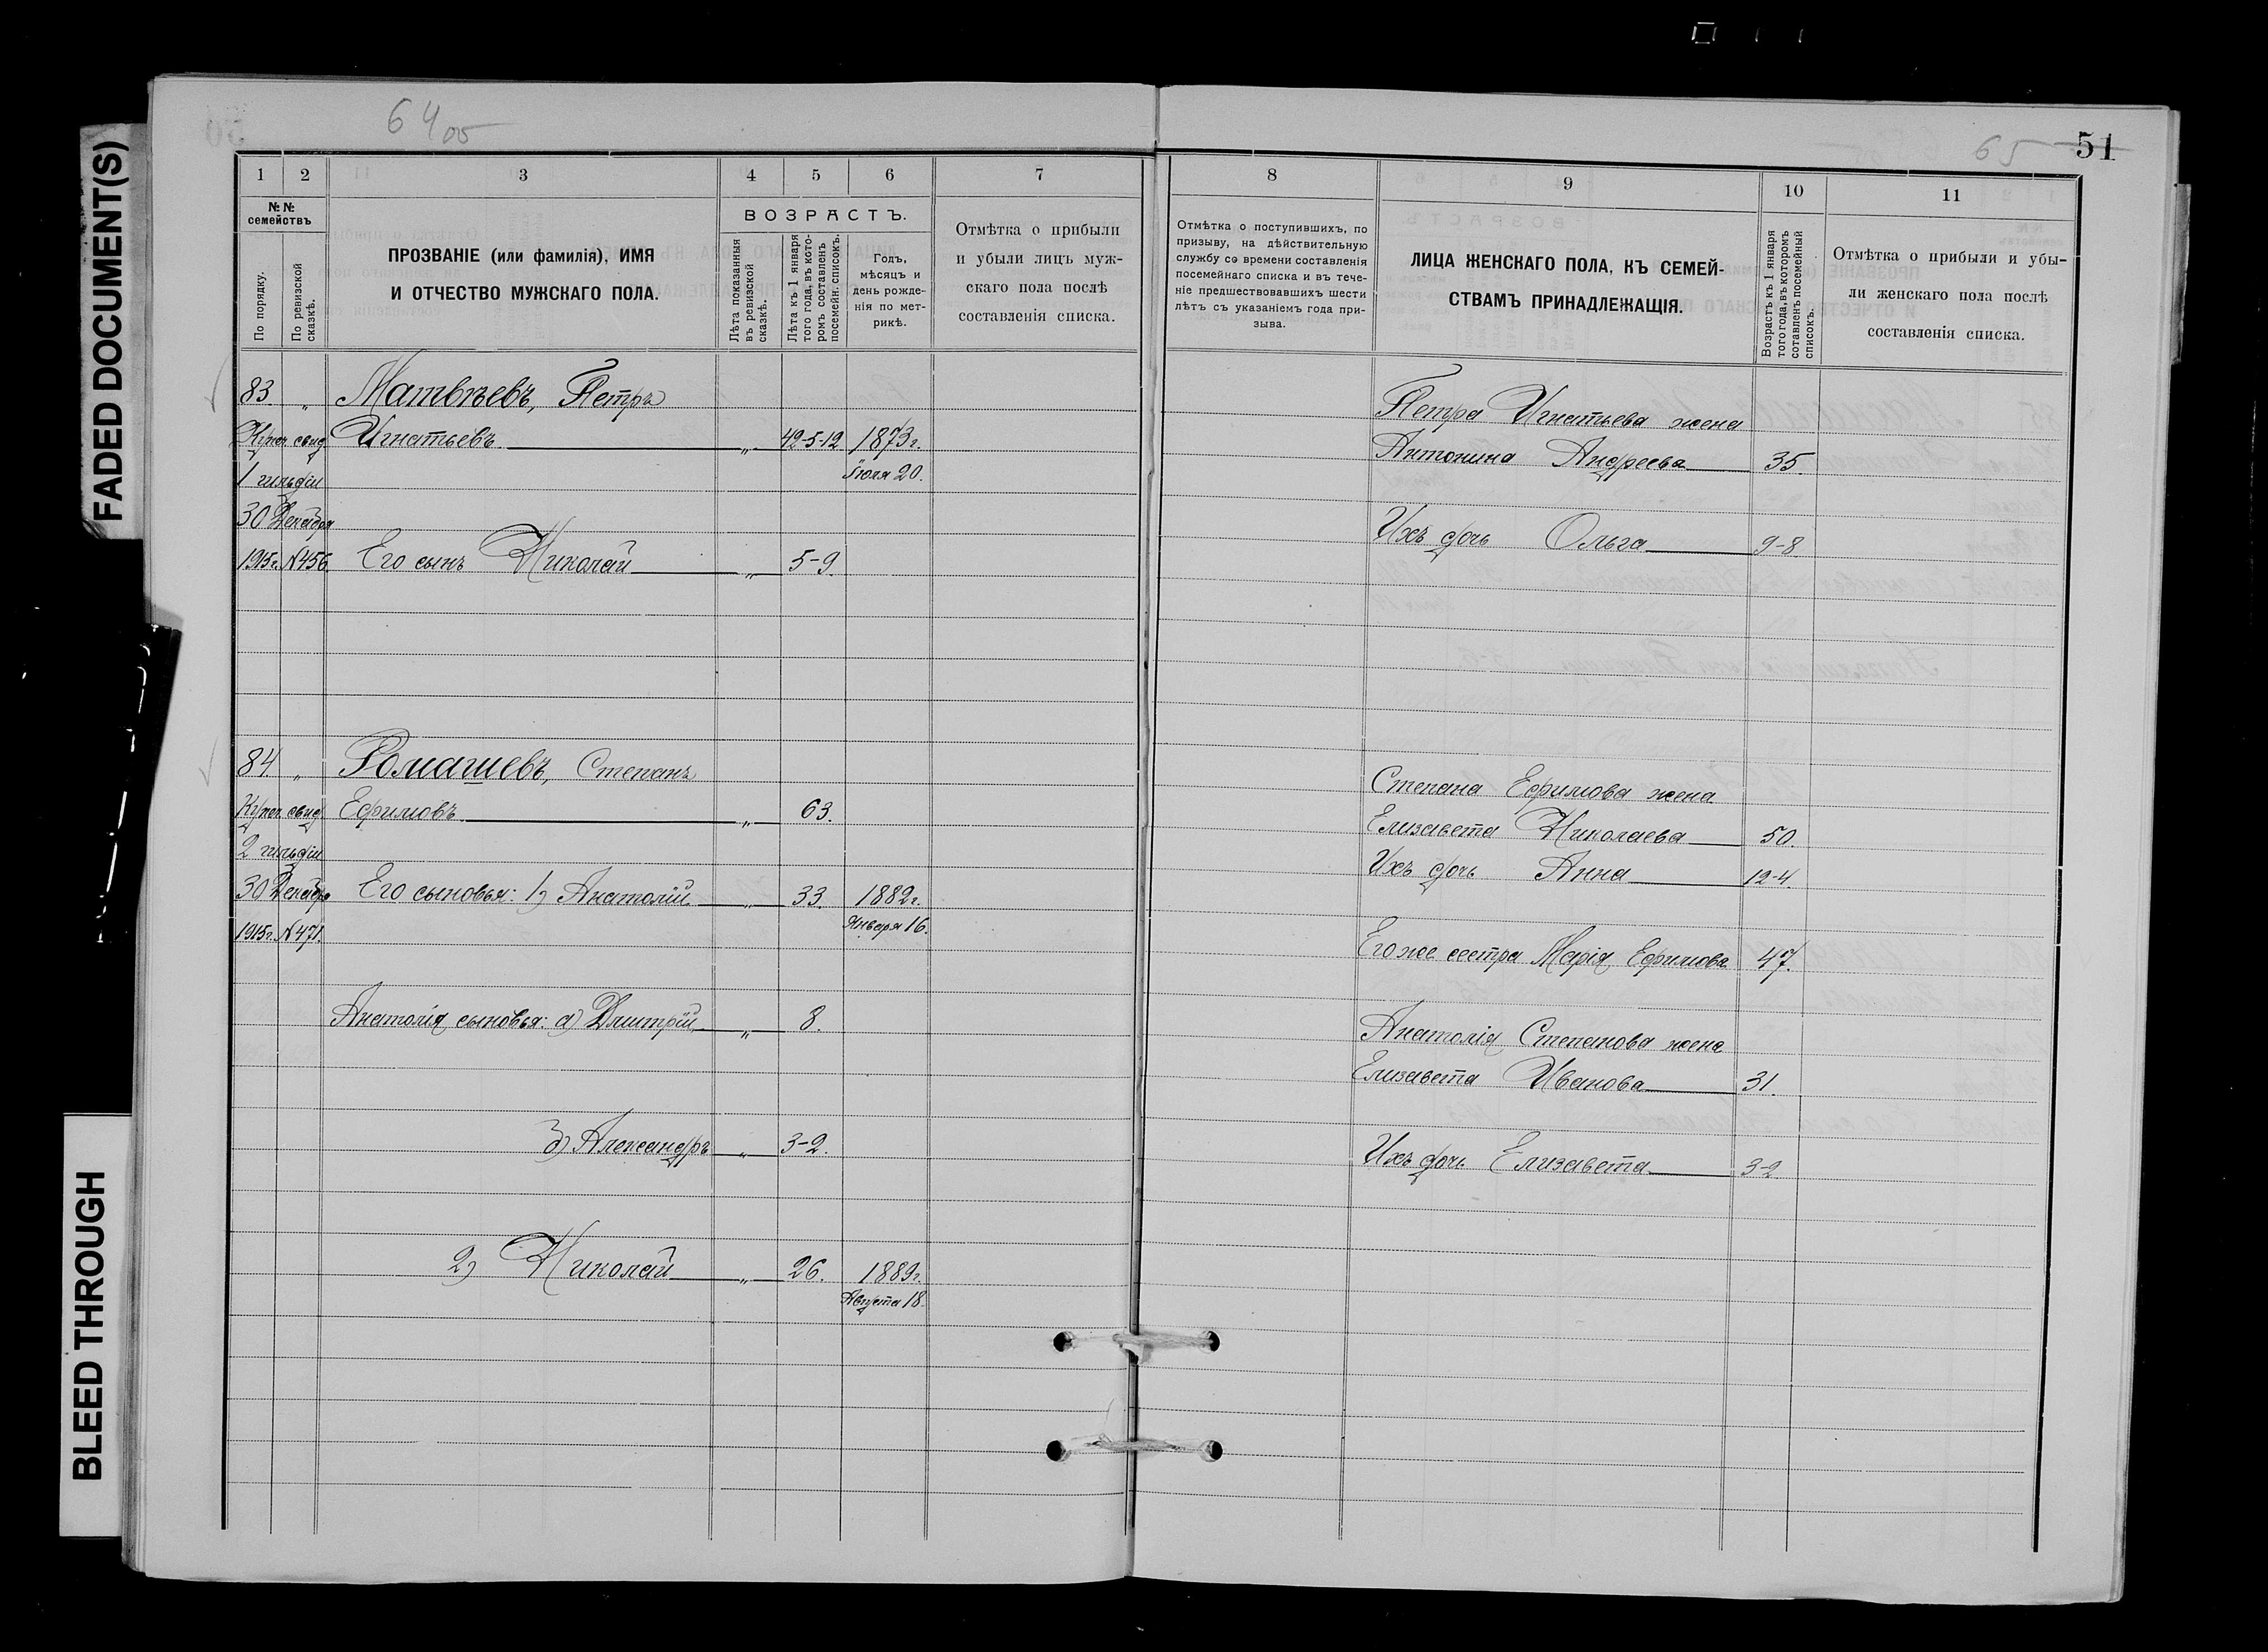 FADED DOCUMENT(S)
BLEED THROUGH
64 об
65 51
1 2 3 4 5 6 7
№ №
семействъ
По порядку.
По ревизской сказкѣ.
ПРОЗВАНІЕ (или фамилія), ИМЯ
И ОТЧЕСТВО МУЖСКАГО ПОЛА.
ВОЗРАСТЪ.
Лѣта показанныя
въ ревизской
сказкѣ.
Лѣта къ 1 января
того года, въ кото-
ромъ составленъ
посемейн. списокъ.
Годъ,
мѣсяцъ и
день рожде-
нія по мет-
рикѣ.
Отмѣтка о прибыли
и убыли лицъ муж-
скаго пола послѣ
составленія списка.
83. „ Матвѣевъ, Петръ
Купеч. свид. Игнатьевъ „ 42-5-12 1873 г.
1 гильдіи Іюля 20.
30 Декабря
1915 г. № 456. Его сынъ Николай „ 5-9.
84. „ Ромашевъ, Степанъ
Купеч. свид. Ефимовъ „ 63.
2 гильдіи
30 Декабря Его сыновья: 1) Анатолій „ 33. 1882 г.
1915 г. № 471. Января 16.
Анатолія сыновья: а) Дмитрій „ 8.
б) Александръ „ 3-2.
2) Николай „ 26. 1889 г.
Августа 18.
8 9 10 11
Отмѣтка о поступившихъ, по
призыву, на дѣйствительную
службу со времени составленія
посемейнаго списка и въ тече-
ніе предшествовавшихъ шести
лѣтъ съ указаніемъ года при-
зыва.
ЛИЦА ЖЕНСКАГО ПОЛА, КЪ СЕМЕЙ-
СТВАМЪ ПРИНАДЛЕЖАЩІЯ.
Возрастъ къ 1 января
того года, въ которомъ
сотавленъ посемейный
списокъ.
Отмѣтка о прибыли и убы-
ли женскаго пола послѣ
составленія списка.
Петра Игнатьева жена
Антонина Андреева 35.
Ихъ дочь Ольга 9-8.
Степана Ефимова жена
Елизавета Николаева 50.
Ихъ дочь Анна 12-4.
Его же сестра Марія Ефимова 47.
Анатолія Степанова жена
Елизавета Иванова 31.
Ихъ дочь Елизавета 3-2.